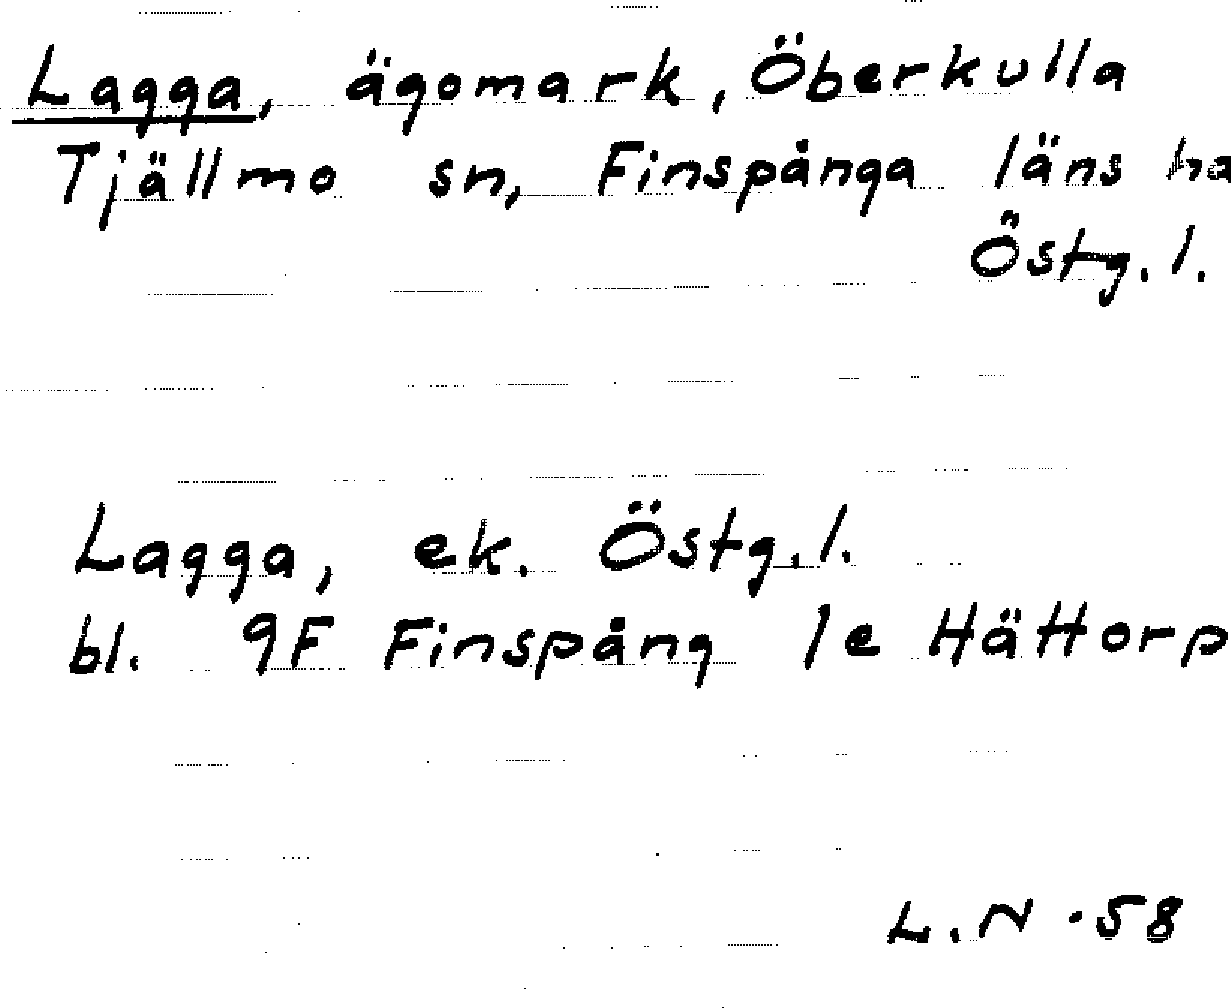 Lagga, ägomark, Öberkulla
Tjällmo sn, Finspånga läns ha
Östg. l.
Lagga, ek. Östg. l.
bl. 9F Finspång 1e Hättorp
L.N -58